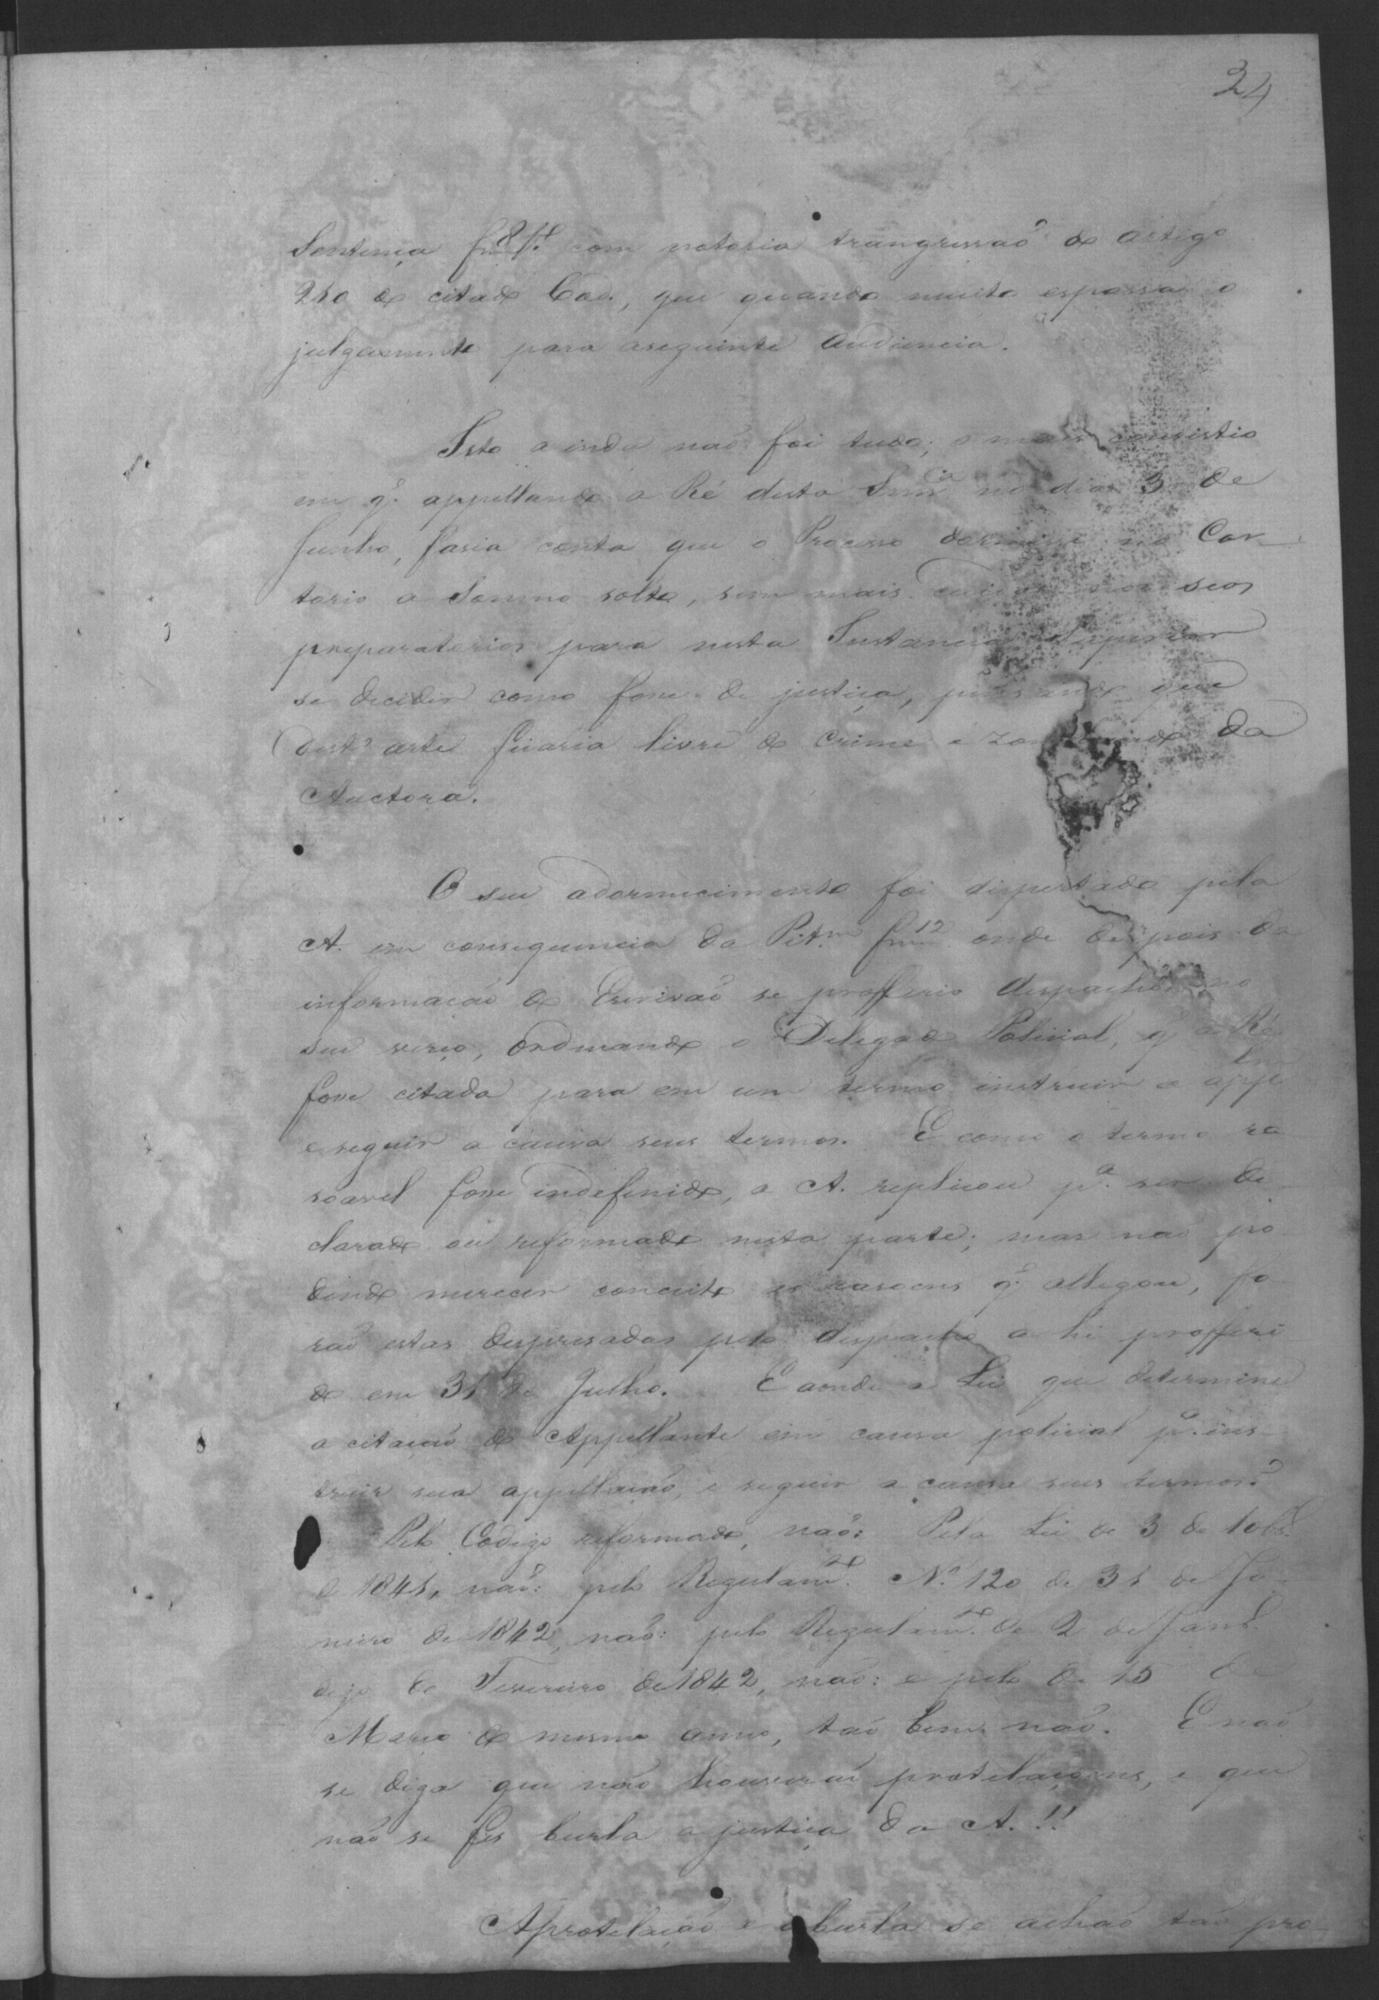 24
Sentença f. 8 com notoria trangressaõ do artigo
210 do citado Cod., que quando muito espassa o
julgamento para aseguinte Audiencia.
Isto ainda naõ foi tudo; o mais consistio
em q.' appellando a Ré desta Senn.ca no dia 3 de
Junho, faria conta que o Processo dormisse no Car-
torio a somno solto, sem mais cuidar nos seos
preparatorios para nesta Instancia Superior
se decidir como fosse de justiça, pensando que
dest'arte ficaria livre do crime e zombando da
Auctora.
O seu adormecimento foi dispertado pela
A. em consequencia da Pet.am f. 12 onde despois da
informaçaõ do Escrivaõ se profferio despacho no
seu verço, ordenando o Delegado Policial, q' a Ré
fosse citada para em um termo instruir a app.am
e seguir a causa seus termos. E como o termo ra
soavel fosse indefinido, a A. replicou p.a ser de
clarado ou reformado nesta parte; mas naõ po
dendo merecer conceito as rasoens q.' allegou, fo
raõ estas despresadas pelo despacho ahi profferi
do em 31 de Julho. E aonde a Lei que determine
a citaçaõ do Appellante em causa policial p.a ins-
truir sua appellaçaõ, e seguir a causa seus termos?
Pelo Codigo reformado, naõ: Pela Lei de 3 de 10br.o
de 1841, naõ: pelo Regulam.to N.o 120 de 31 de Ja-
neiro de 1842, naõ: pelo Regulam.to de 2 de Jan.o
digo de Fevereiro de 1842, naõ: e pelo de 15 de
Março do mesmo anno, taõ bem naõ. E naõ
se diga que naõ houveraõ protelaçoens, e que
naõ se fes burla a justiça da A.!!
Aprotelaçaõ e aburla se achaõ taõ pro-